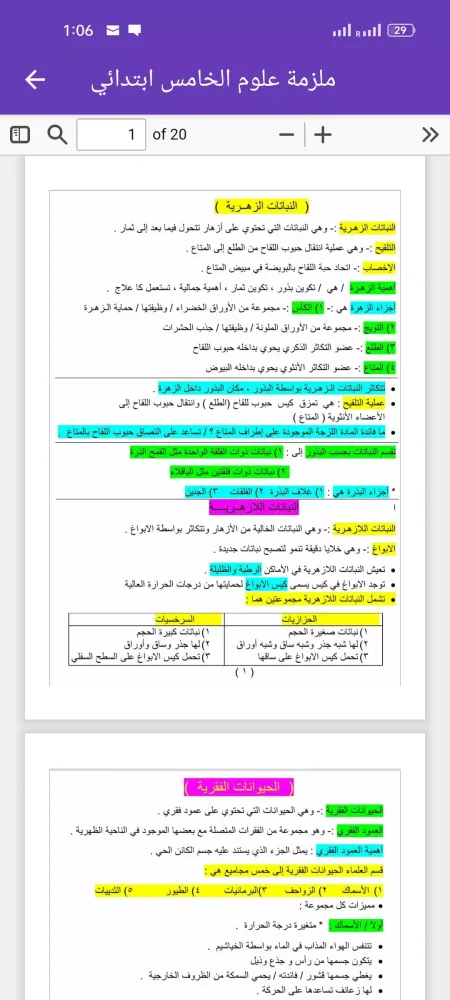 1:06
29
ملزمة علوم الخامس ابتدائي
1 of 20
( النباتات الزهـرية )
النباتات الزهرية :- وهي النباتات التي تحتوي على أزهار تتحول فيما بعد إلى ثمار .
التلقيح :- وهي عملية انتقال حبوب اللقاح من الطلع إلى المتاع .
الإخصاب :- اتحاد حبة اللقاح بالبويضة في مبيض المتاع .
أهمية الزهرة / هي / تكوين بذور ، تكوين ثمار ، أهمية جمالية ، تستعمل كا علاج .
أجزاء الزهرة هي :- ١) الكأس :- مجموعة من الأوراق الخضراء / وظيفتها / حماية الزهرة
٢) التويج :- مجموعة من الأوراق الملونة / وظيفتها / جذب الحشرات
٣) الطلع :- عضو التكاثر الذكري يحوي بداخله حبوب اللقاح
٤) المتاع :- عضو التكاثر الأنثوي يحوي بداخله البيوض
• تتكاثر النباتات الزهرية بواسطة البذور ، مكان البذور داخل الزهرة .
• عملية التلقيح : هي تمزق كيس حبوب للقاح (الطلع ) وانتقال حبوب اللقاح إلى
الأعضاء الأنثوية ( المتاع )
• ما فائدة المادة اللزجة الموجودة على إطراف المتاع ؟ / تساعد على التصاق حبوب اللقاح بالمتاع .
تقسم النباتات بحسب البذور إلى : ١) نباتات ذوات الفلقة الواحدة مثل القمح الذرة
٢) نباتات ذوات فلقتين مثل الباقلاء
* أجزاء البذرة هي : ١) غلاف البذرة ٢) الفلقات ٣) الجنين
النباتات اللازهريـــة
ا
النباتات اللازهرية :- وهي النباتات الخالية من الأزهار وتتكاثر بواسطة الابواغ .
الابواغ :- وهي خلايا دقيقة تنمو لتصبح نباتات جديدة .
• تعيش النباتات اللازهرية في الأماكن الرطبة والظليلة .
• توجد الابواغ في كيس يسمى كيس الابواغ لحمايتها من درجات الحرارة العالية
• تشمل النباتات اللازهرية مجموعتين هما :
الحزازيات السرخسيات
١) نباتات صغيرة الحجم ١) نباتات كبيرة الحجم
٢) لها شبه جذر وشبه ساق وشبه أوراق ٢) لها جذر وساق وأوراق
٣) تحمل كيس الابواغ على ساقها ٣) تحمل كيس الابواغ على السطح السفلي
( ١ )
( الحيوانات الفقرية )
الحيوانات الفقرية :- وهي الحيوانات التي تحتوي على عمود فقري .
العمود الفقري :- وهو مجموعة من الفقرات المتصلة مع بعضها الموجود في الناحية الظهرية .
أهمية العمود الفقري : يمثل الجزء الذي يستند عليه جسم الكائن الحي .
قسم العلماء الحيوانات الفقرية إلى خمس مجاميع هي :
١) الأسماك ٢) الزواحف ٣)البرمائيات ٤) الطيور ٥) الثدييات
• مميزات كل مجموعة :
أولا / الأسماك : * متغيرة درجة الحرارة .
• تتنفس الهواء المذاب في الماء بواسطة الخياشيم .
• يتكون جسمها من رأس و جذع وذيل
• يغطي جسمها قشور / فائدته / يحمي السمكة من الظروف الخارجية .
• لها زعانف تساعدها على الحركة .